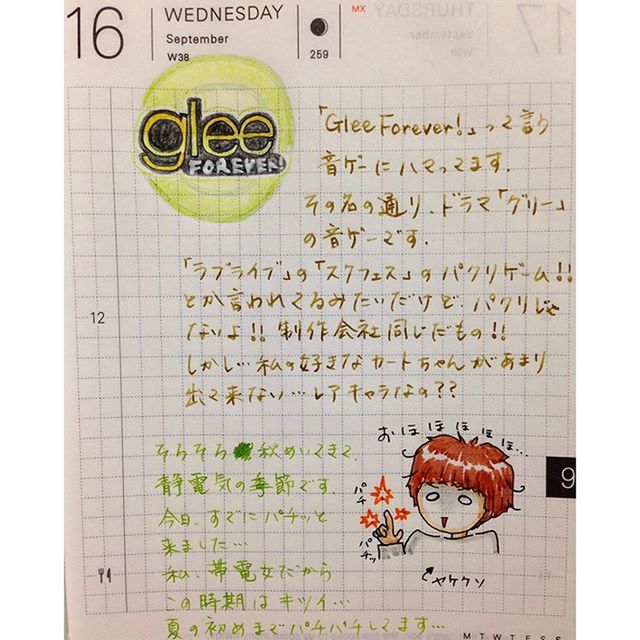 16
WEDNESDAY
September
W38
259
MX
glee
FOREVER
「Glee Forever!」って言う
音ゲーにハマってます。
その名の通り、ドラマ「グリー」
の音ゲーです。
「ラブライブ」の「スクフェス」のパクリゲーム!!
とか言われてるみたいだけど、パクリじゃ
ないよ!!制作会社同じだもの!!
しかし…私の好きなカートちゃんがあまり
出て来ない…レアキャラなの??
12
そろそろ秋めいてきて、
静電気の季節です。
今日、すでにパチッと
来ました…
私、帯電女だから
この時期はキツイ…
夏の初めまでパチパチしてます…
おほほほほほほ…
パチ
パチッ
ヤケクソ
9
M T W T F S S
THURSDAY
September
W38
17